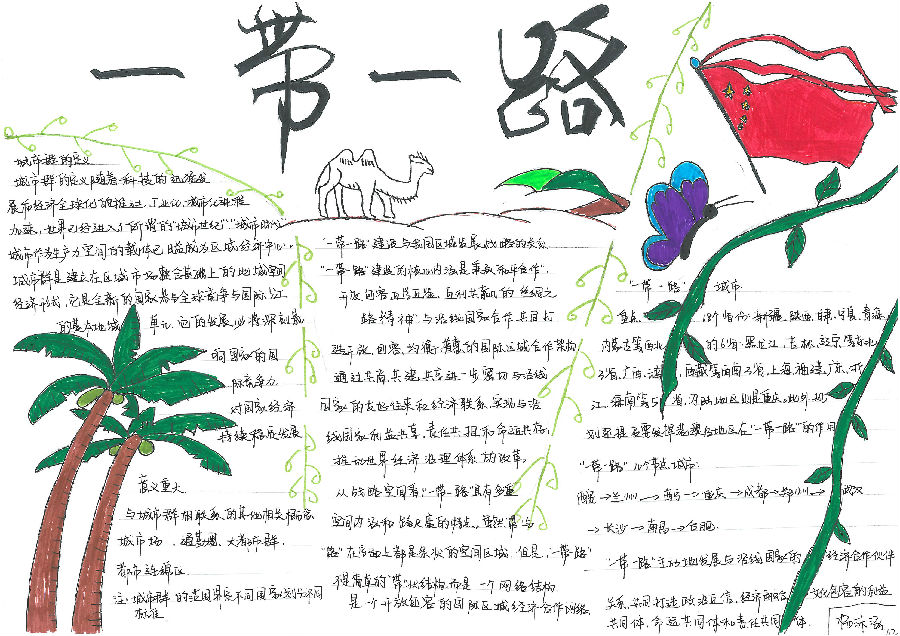 一带一路
城市群的定义
城市群的定义随着科技的迅猛发
展和经济全球化的推进、工业化、城市化进程
加快,世界已经进入了所谓的"城市世纪""城市时代"
城市作为生产力空间的载体已日益成为区域经济中心,
城市群是建立在区域市场融合基础上的地域空间
经济形式,它是全新的国家参与全球竞争与国际分工
的基本地域 单元 它的发展必将深刻影
响国家的国
际竞争力
对国家经济
持续稳定发展
意义重大
与城市群相联系的其他相关概念
城市场、通勤圈、大都市群、
都市连绵区
注:城市群的范围界定不同国家划分不同
标准
"一带一路"建设与我国区域发展战略的关系
"一带一路"建设的核心内涵是秉承和平合作、
开放包容、互学互鉴、互利共赢的丝绸之
路精神 与沿线国家合作共同打
造开放、包容、均衡、普惠的国际区域合作架构
通过共商、共建、共享进一步密切与沿线
国家的友好往来和经济联系,实现与沿
线国家利益共享、责任共担和命运共相,
推动世界经济治理体系的改革。
从战略空间看,"一带一路"具有多重
空间内涵和跨尺度的特点。虽然"带"与
"路"在字面上都是条状的空间区域 但是,"一带一路"
不是简单的"带"状结构,而是一个网络结构
是一个开放包容的国际区域经济合作网络
"一带一路" 城市
重点 18个省份:新疆、陕西、甘肃、宁夏、青海
内蒙古等西北 的6省、黑龙江、吉林、辽宁等东北
3省、广西、云南、西藏等西南3省、上海、福建、广东、浙
江、海南等5省、内陆地区则是重庆。此外,规
划还提及要发挥港澳台地区在"一带一路"的作用
"一带一路"几个节点城市:
西安→兰州→西宁→重庆→成都→郑州→武汉
→长沙→南昌→合肥
"一带一路"主动地发展与沿线国家的 经济合作伙伴
关系,共同打造政治互信、经济融合、文化包容的利益
共同体、命运共同体和责任共同体。